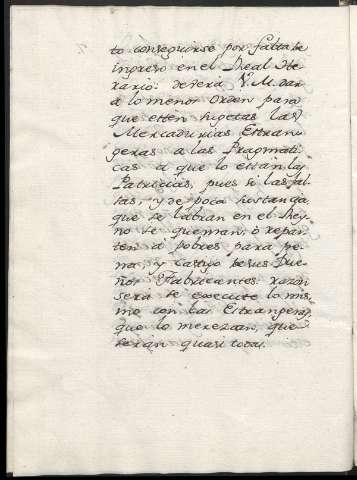 to conseguirse por falta de
ingreso en el Real He-
rario: deverá V. M. dar
a lo menor orden para
que estén sugetas las
Mercadurias Estran-
geras a las Pragmati-
cas a que lo están las
Patricias, pues si las fal-
sas, y de poca sostancia
que se labran en el Rey-
no se queman, ò repar-
ten à pobres para pe-
na, y castigo de sus Due-
ños Fabricantes: razon
será se execute lo mis-
mo con las Estrangeras,
que lo merezcan, que
serán quasi todas.